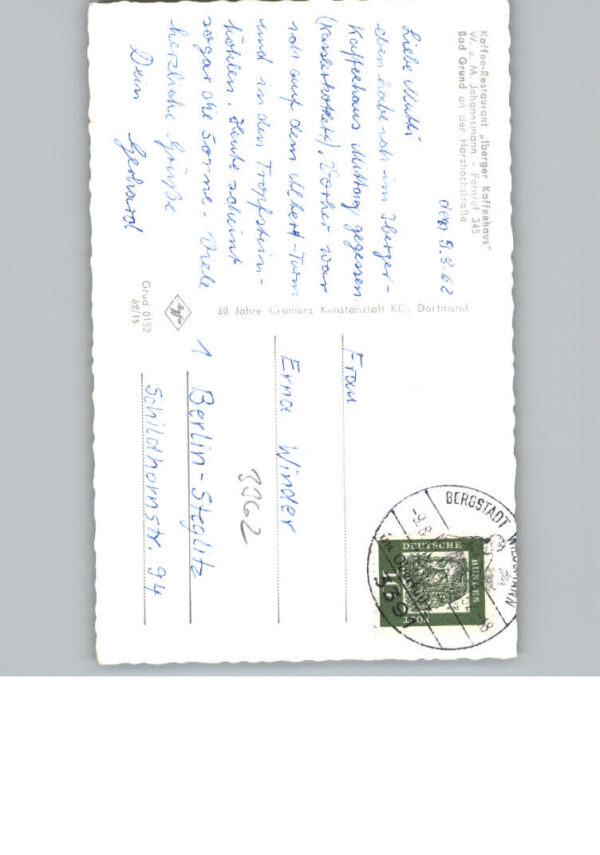 Kaffee-Restaurant „Iberger Kaffeehaus"
W. u. M. Johannsmann - Fernruf 345
Bad Grund an der Harzhochstraße
den 9.8.62
Liebe Mutti
eben habe ich im Iberger-
Kaffeehaus Mittag gegessen.
(Kasslerkotlett), Vorher war
ich auf dem Albert-Turm
und in den Tropfstein-
höhlen. Heute scheint
sogar die Sonne. Viele
herzliche Grüße
Dein Gerhard
60 Jahre Cramers Kunstanstalt KG, Dortmund
Grud 0152
62/15
Frau
Erna Winder
1 Berlin-Steglitz
Schildhornstr. 94
3962
BERGSTADT WILDEMANN
-9.8.
3391
DEUTSCHE
BUNDES
POST